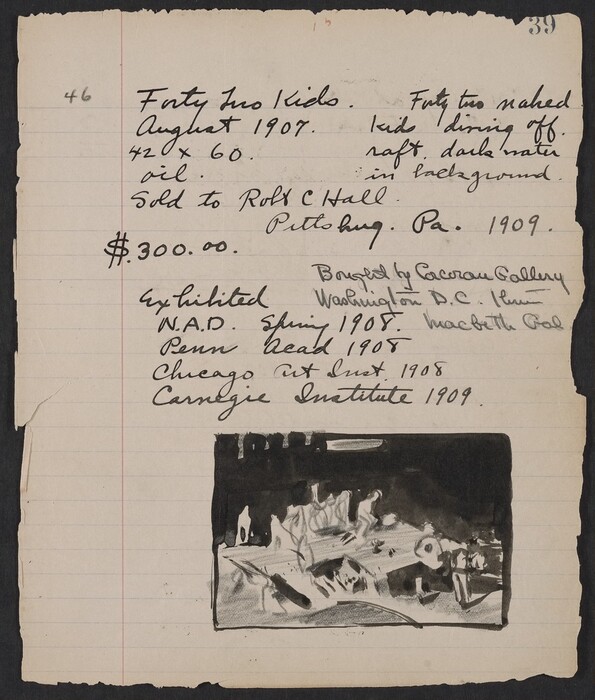 39
46
Forty Two Kids. Forty two naked
August 1907. kids diving off.
42 x 60. raft. dark water
oil. in background.
Sold to Robt C Hall.
Pittsburg. Pa. 1909.
$.300.00.
Bought by Cocoran Gallery
Exhibited Washington D.C. thru
N.A.D. Spring 1908. Macbeth Gal
Penn Acad 1908
Chicago Art Inst. 1908
Carnegie Institute 1909.